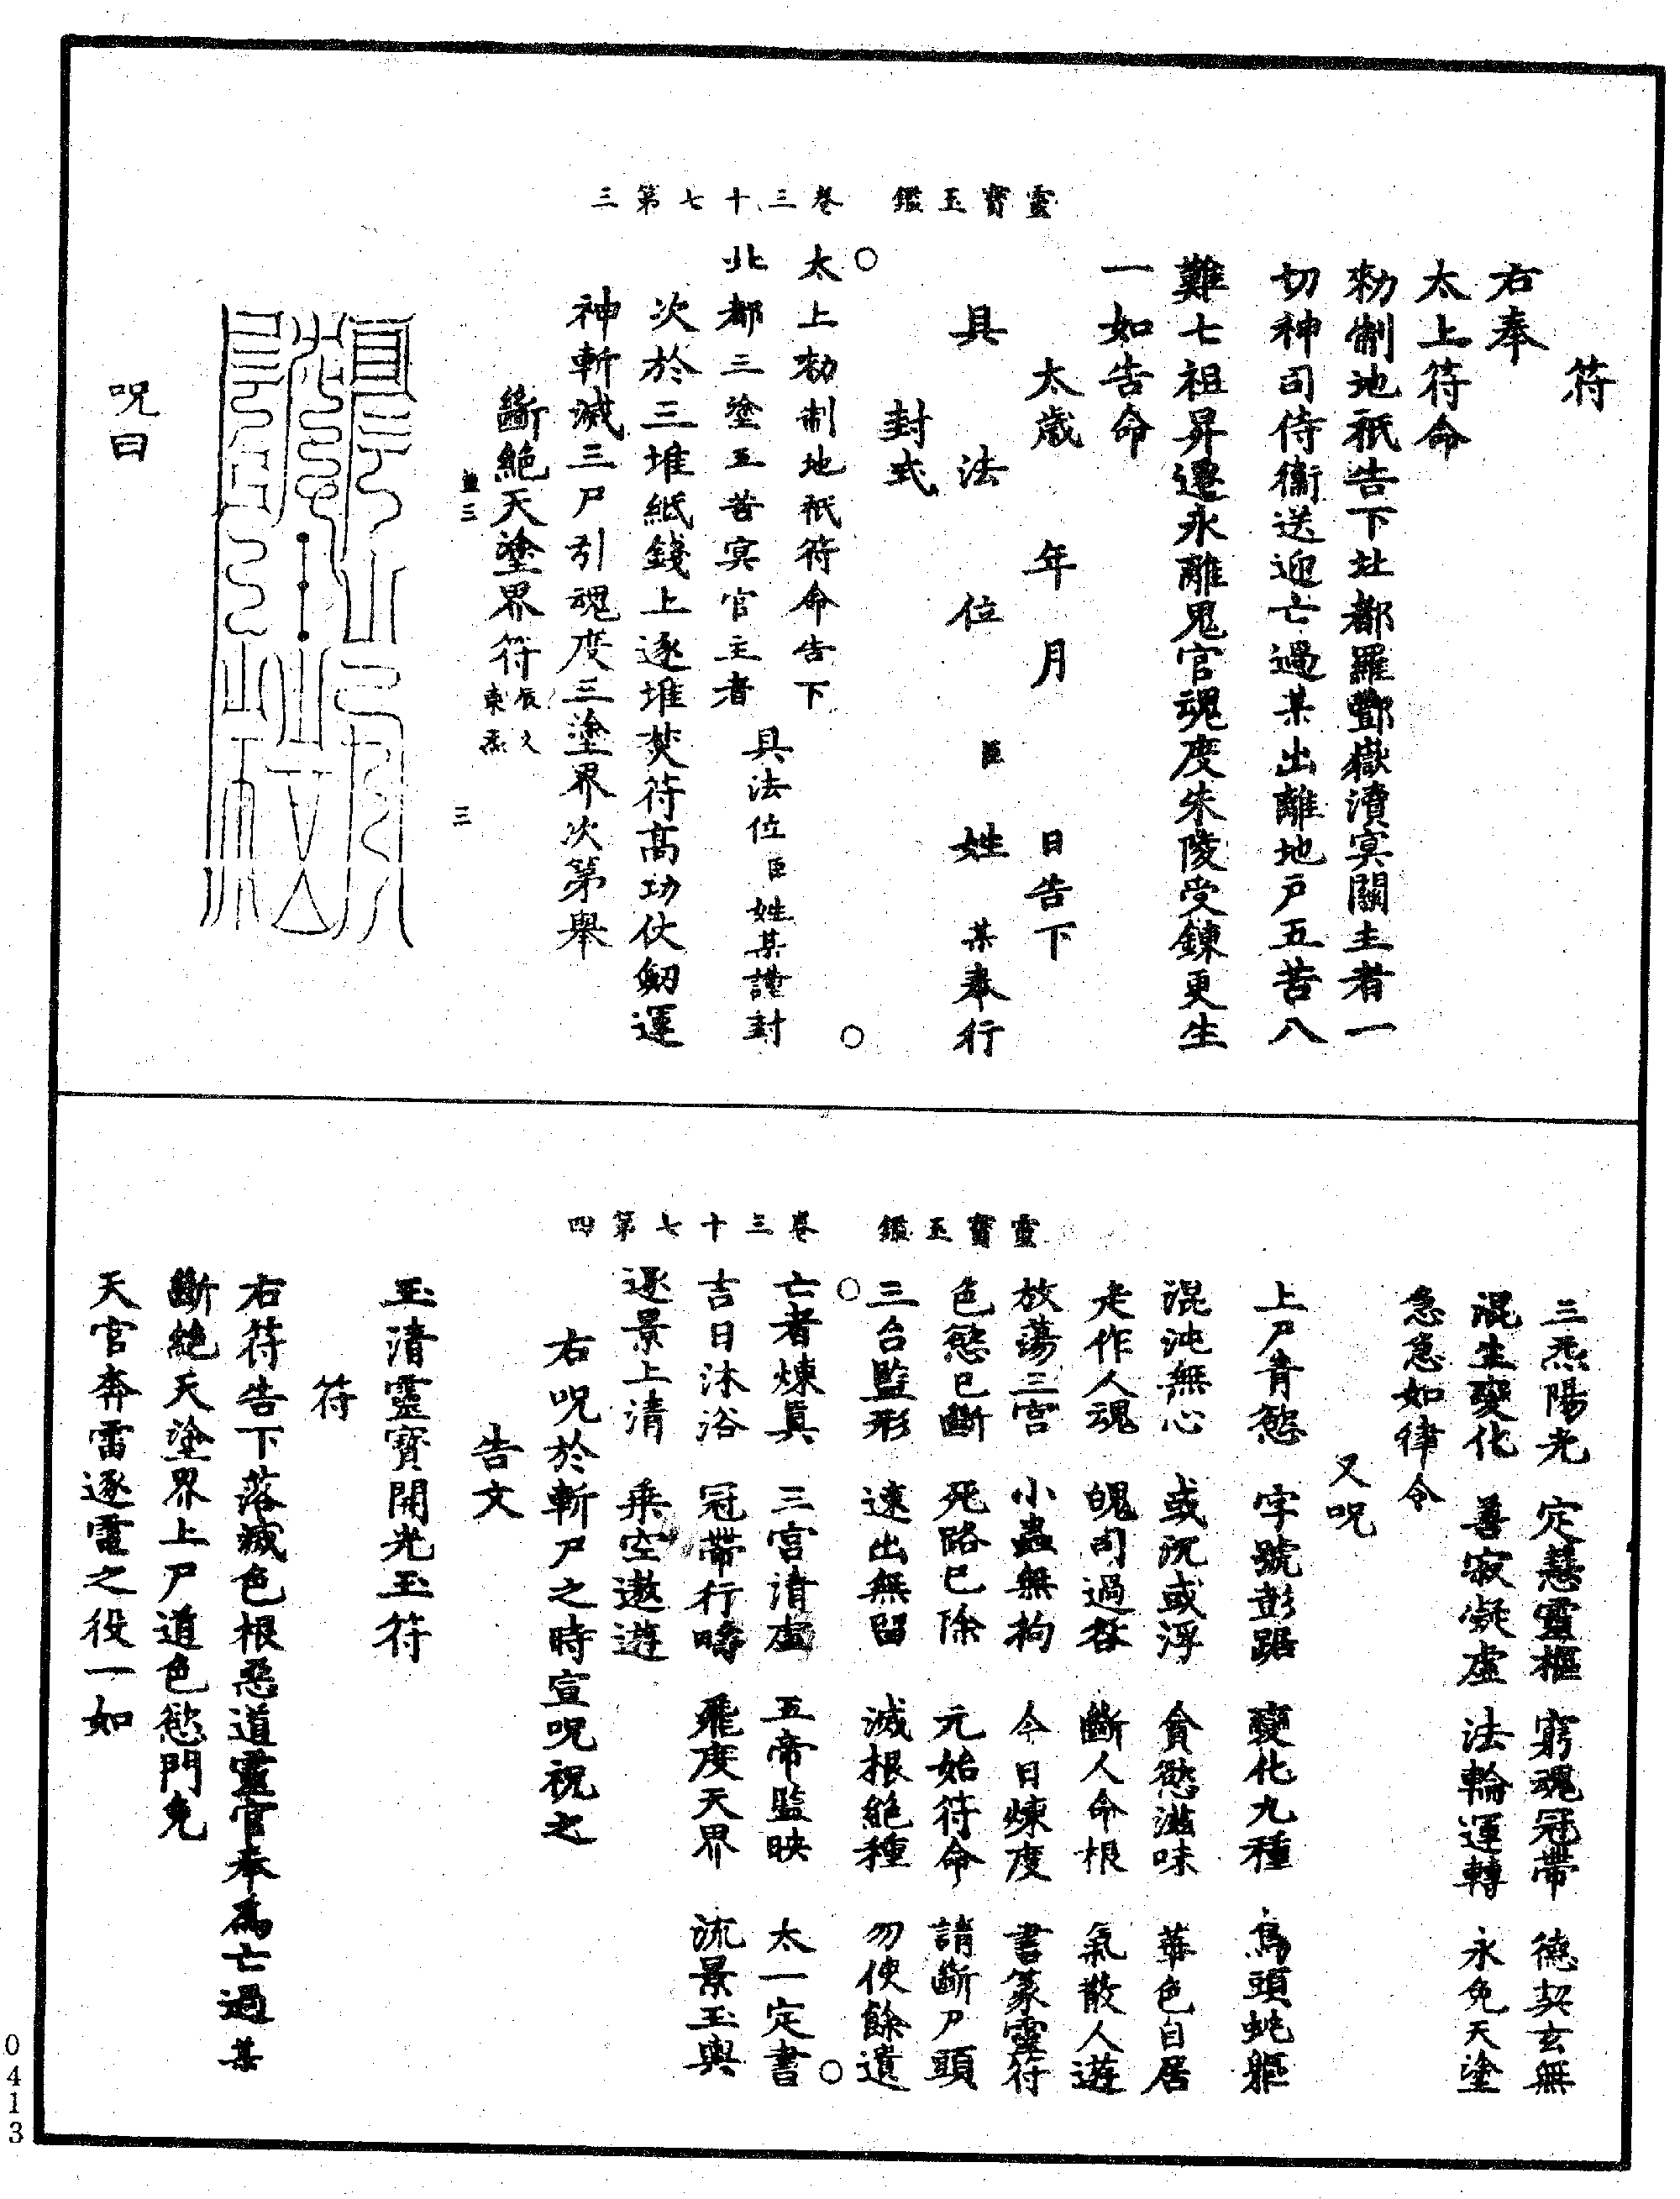 靈寶玉鑑　卷三十七第三
符
右奉
太上符命
勑制地祇告下北都羅酆嶽瀆冥關主者一
切神司侍衞送迎亡過某出離地戶五苦八
難七祖昇遷永離鬼官魂度朱陵受鍊更生
一如告命
太歲　年　月　日告下
具　法　位　臣　姓　某奉行
封式
○　○
太上勑制地祇符命告下
北都三塗五苦冥官主者　具法位臣姓某謹封
次於三堆紙錢上逐堆焚符高功仗劒運
神斬滅三尸引魂度三塗界次第舉
斷絕天塗界符
三
呪曰
靈寶玉鑑　卷三十七第四
三炁陽光　定慧靈樞　窮魂冠帶　德契玄無
混生變化　善寂凝虛　法輪運轉　永免天塗
急急如律令
又呪
上尸青慾　字號彭踞　變化九種　烏頭蛇軀
混沌無心　或沉或浮　貪慾滋味　華色自居
走作人魂　魄司過咎　斷人命根　氣散人遊
放蕩三宮　小蟲無拘　今日煉度　書篆靈符
色慾已斷　死路已除　元始符命　請斷尸頭
三台監形　速出無留　滅根絕種　勿使餘遺
○　○
亡者煉眞　三宮清虛　五帝監映　太一定書
吉日沐浴　冠帶行疇　飛度天界　流景玉輿
逐景上清　乘空遨遊
右呪於斬尸之時宣呪祝之
告文
玉清靈寶開光玉符
符
右符告下落滅色根惡道靈官奉爲亡過某
斷絕天塗界上尸道色慾門免
天官奔雷逐電之役一如
0413